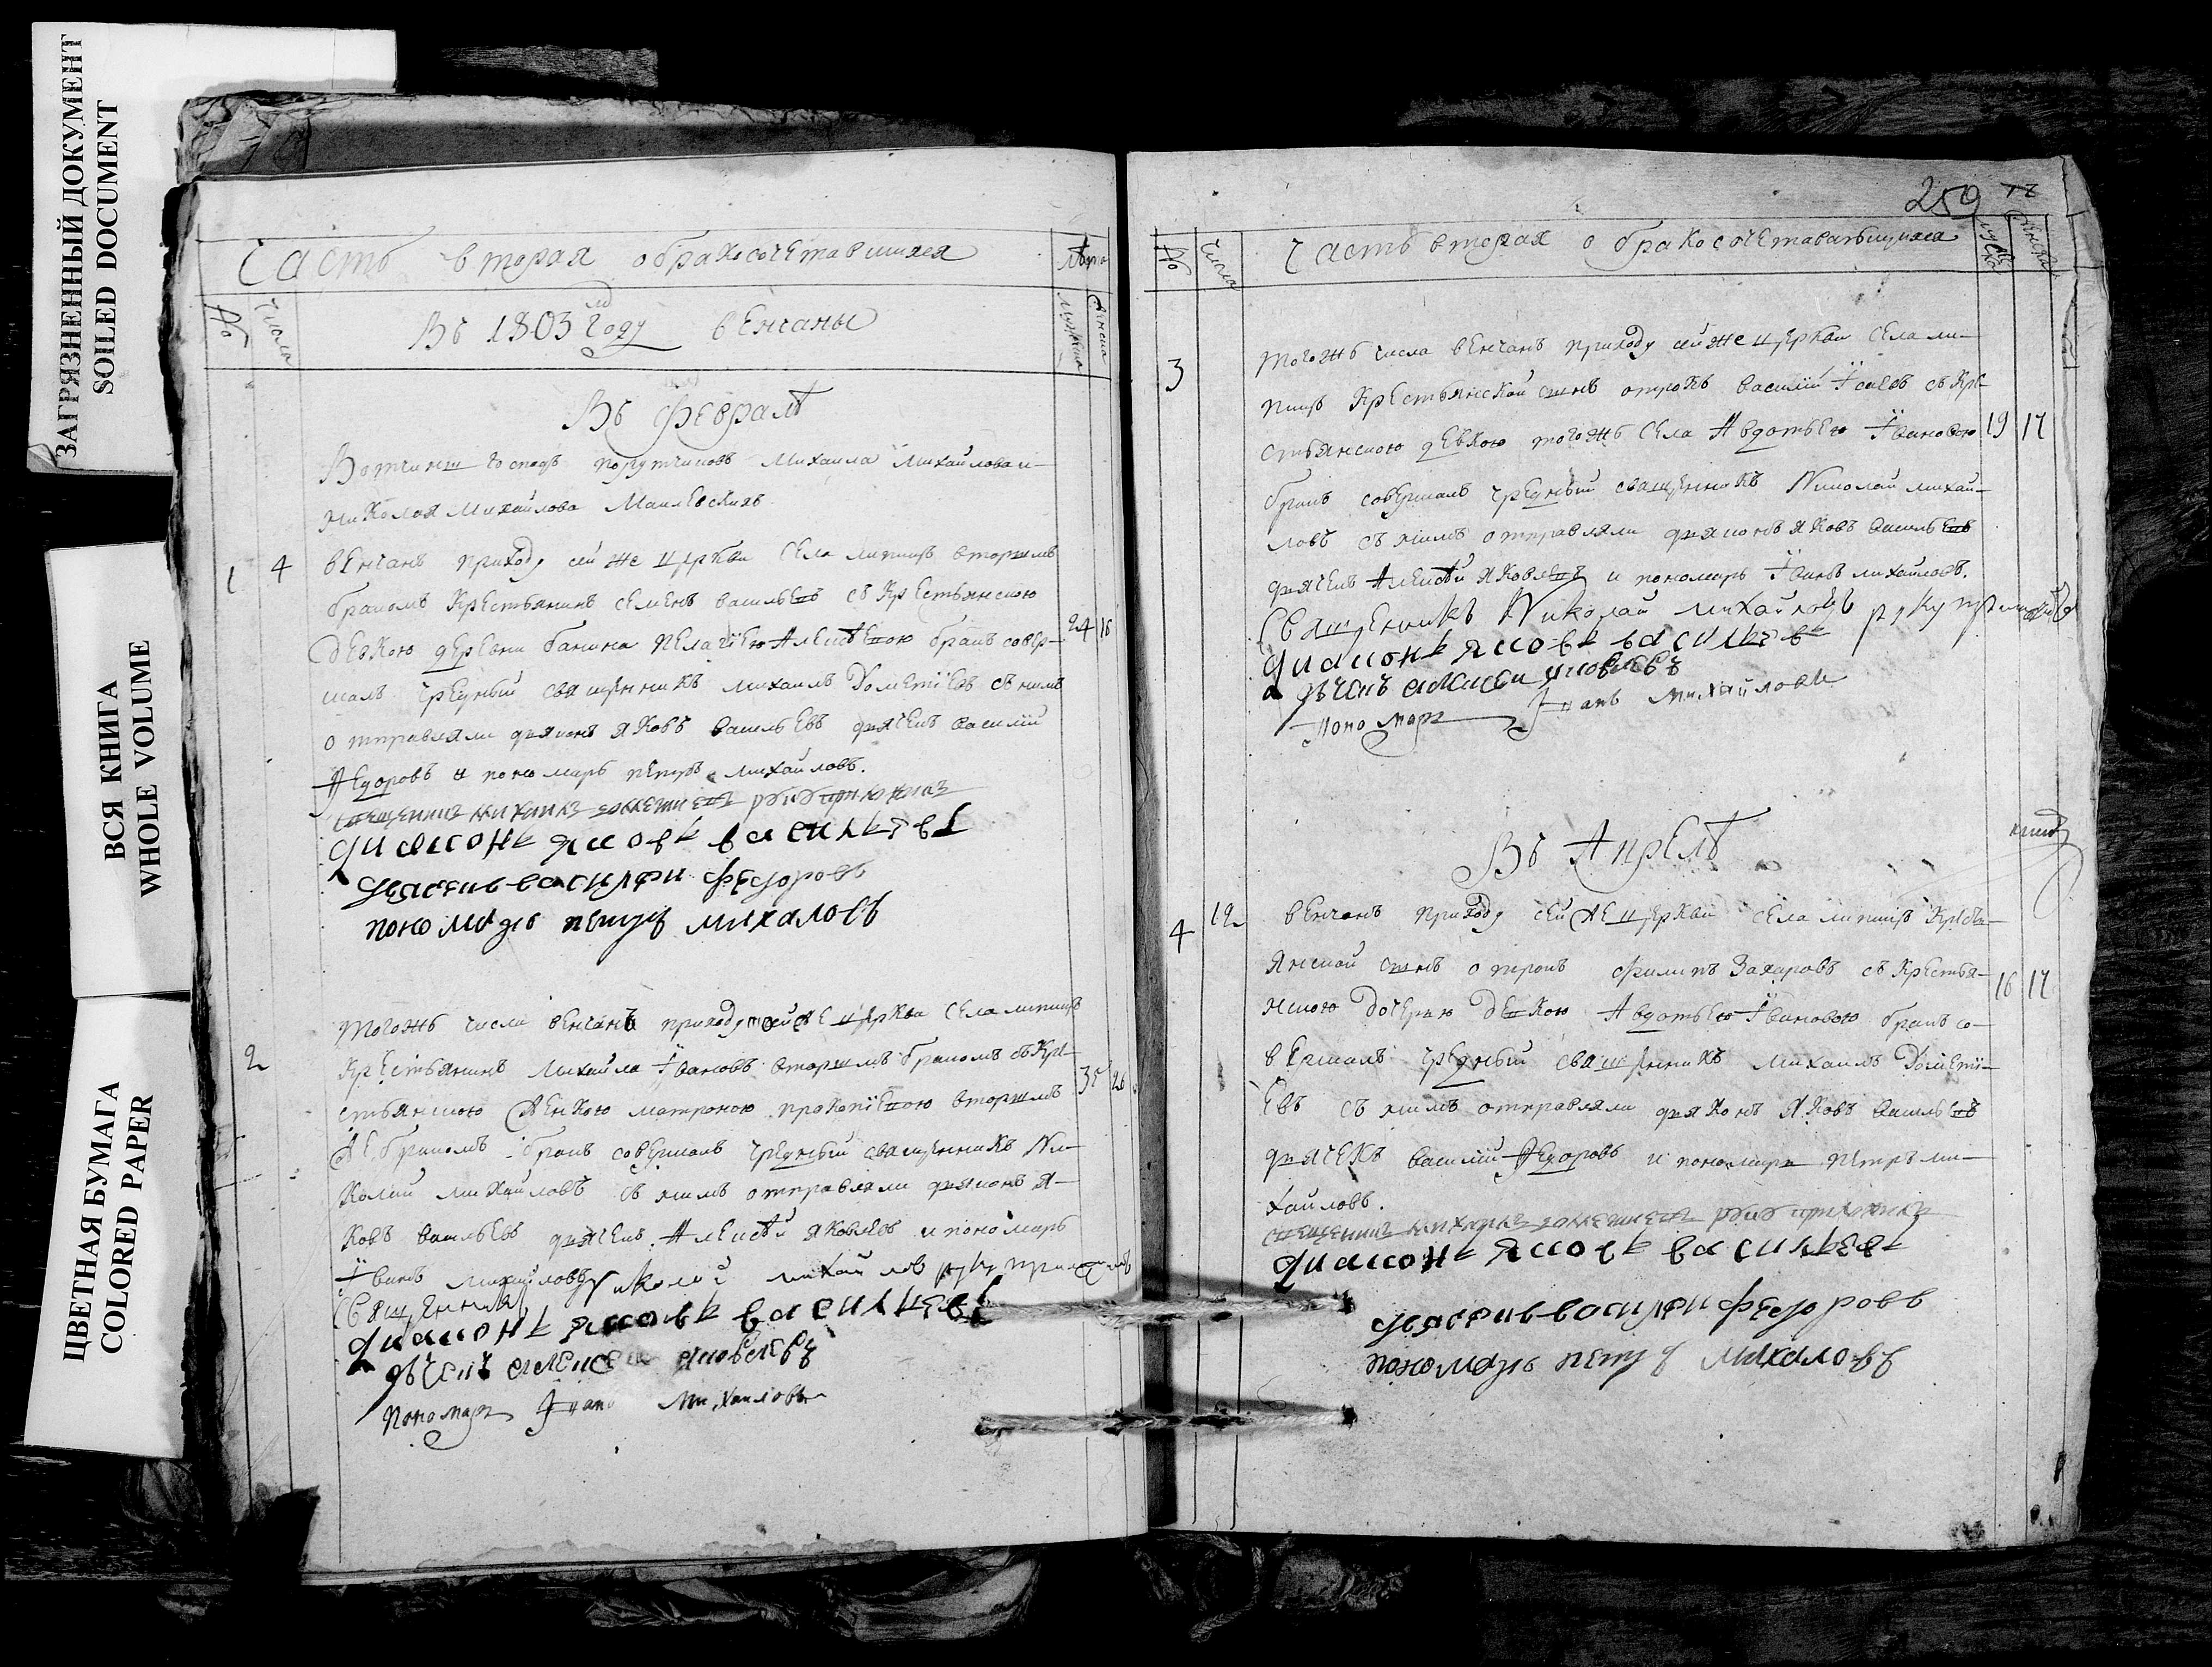 ЗАГРЯЗНЕННЫЙ ДОКУМЕНТ
SOILED DOCUMENT
ВСЯ КНИГА
WHOLE VOLUME
ЦВЕТНАЯ БУМАГА
COLORED PAPER
Часть вторая о бракосочетавшихся
Лета
№
Числа
Въ 1803м Году венчаны
Мужска
Женска
Въ Февралѣ
Вотчины господъ порутчиковъ Михаила Михайлова и
Николая Михайлова
1 4 венчанъ приходу сей же церкви села липицъ вторымъ
бракомъ крестьянинъ семенъ васильевъ съ крестьянскою
девкою деревни банина пелагïею Алексѣевою бракъ совер-
24 18
шалъ чредный священникъ михаилъ Дометïевъ съ нимъ
отправляли дияконъ Яковъ Васильевъ дячекъ василïй
Ѳедоровъ и пономарь петръ михайловъ.
священникъ михаилъ дометиевъ
диаконъ яковъ васильевъ
дьячекъ василѣи федоровъ
пономарь петръ михаловъ
2 тогожъ числа венчанъ приходу сей же церкви села липицъ
крестьянинъ михайла Ївановъ вторымъ бракомъ съ кре-
стьянскою женкою матроною прокопïевою вторымъ
35 26
же бракомъ бракъ совершалъ чредный священникъ Ни-
колай михайловъ съ нимъ отправляли дияконъ Я-
ковъ васильевъ дячекъ Алексѣй яковлевъ и пономарь
Ïванъ михайловъ
Священникъ николай михайлов руку приложилъ
диаконъ яковъ васильевъ
дьчекъ алексеи яковлевъ
Пономаръ Иванъ Михаиловъ
259
№
Числа
Часть вторая о бракосочетавающихся
мужска
женска
3 тогожъ числа венчанъ приходу сей же церкви села ли-
пицъ крестьянской сынъ отрокъ василïй Ïсаевъ съ кре-
стьянскою девкою тогожъ села Авдотьею Ївановою
19 17
бракъ совершалъ чредный священникъ Николай михай-
ловъ съ нимъ отправляли дияконъ яковъ васильевъ
дячекъ Алексѣй яковлевъ и пономарь Ïванъ михайловъ.
Священникъ Николай михайловъ руку приложилъ
диаконъ яковъ васильевъ
дьчекъ алексеи яковлевъ
Пономаръ Иванъ Михайловъ
Въ Апрелѣ
4 12 венчанъ приходу сей же церкви села липицъ кресть-
янской сынъ отрокъ филипъ Захаровъ съ крестья-
нскою дочерью девкою Авдотьею Ївановою бракъ со-
16 17
вершалъ чредный священникъ михаилъ Дометï-
евъ съ нимъ отправляли дияконъ Яковъ васильевъ
дячекъ василïй Ѳедоровъ и пономарь петръ ми-
хайловъ.
священникъ михаилъ дометиевъ
диаконъ яковъ васильевъ
дьячекъ василѣи федоровъ
пономарь петръ михаловъ